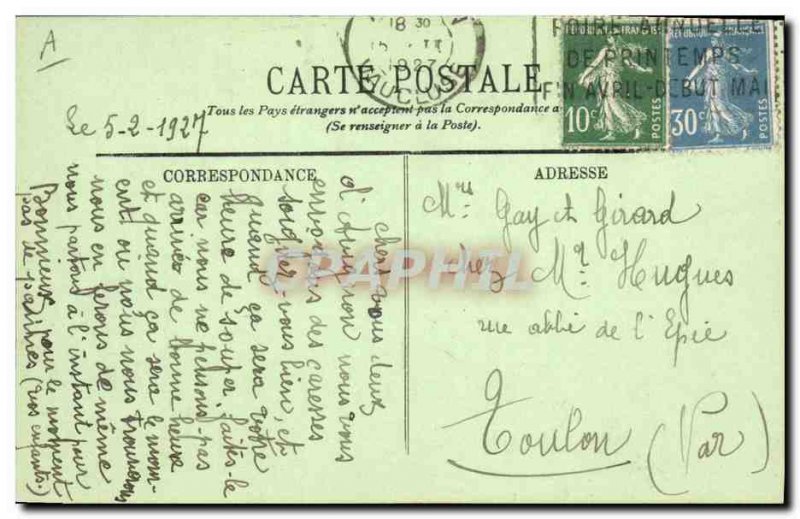 A
18 30
1927
VAUCLUSE
FOIRE ANNUELLE
DE PRINTEMPS
FIN AVRIL-DEBUT MAI
REPUBLIQUE FRANÇAISE
10c
POSTES
REPUBLIQUE FRANÇAISE
30c
POSTES
CARTE POSTALE
Tous les Pays étrangers n'acceptent pas la Correspondance a
(Se renseigner à la Poste).
Le 5-2-1927
CORRESPONDANCE
Chers vous deux
d'Avignon nous vous
envoyons des caresses
soignez-vous bien, et
quand ça sera votre
heure de souper, faites-le
car nous ne pensons pas
arriver de bonne heure
et quand ça sera le mom-
ent où nous nous trouverons
nous en ferons de même
nous partons à l'instant pour
Bonnieux pour le moment
pas de pannes (vos enfants.)
ADRESSE
Mrs Gay et Girard
chez Mr Hugues
rue abbé de l'Epée
Toulon (Var)
CPARAMA